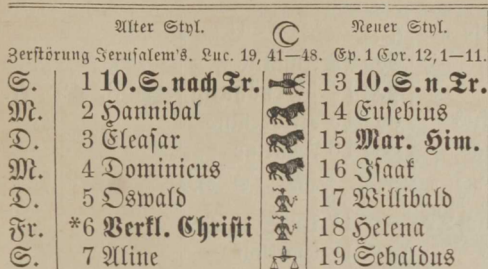 Alter Styl. ☾ Neuer Styl.
Zerstörung Jerusalem's. Luc. 19, 41—48. Ep. 1 Cor. 12, 1—11.
S. 1 10. S. nach Tr. 13 10. S. n. Tr.
M. 2 Hannibal 14 Eusebius
D. 3 Eleasar 15 Mar. Him.
M. 4 Dominicus 16 Isaak
D. 5 Oswald 17 Willibald
Fr. *6 Verkl. Christi 18 Helena
S. 7 Aline 19 Sebaldus